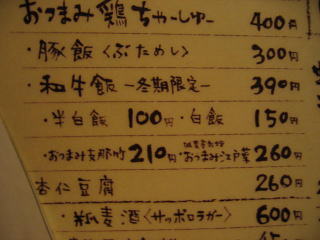 おつまみ鶏ちゃーしゅー 400円
・豚飯〈ぶためし〉 300円
・和牛飯 -冬期限定- 390円
・半白飯 100円 ・白飯 150円
・おつまみ支那竹 210円 ・おつまみ江戸菜 260円
杏仁豆腐 260円
・瓶麦酒〈サッポロラガー〉 600円